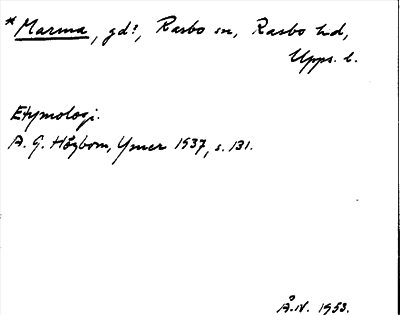 *Marma, gd?, Rasbo sn, Rasbo hd,
Upps. l.
Etymologi.
A. G. Högbom, Ymer 1937, s. 131.
Å.N. 1953.